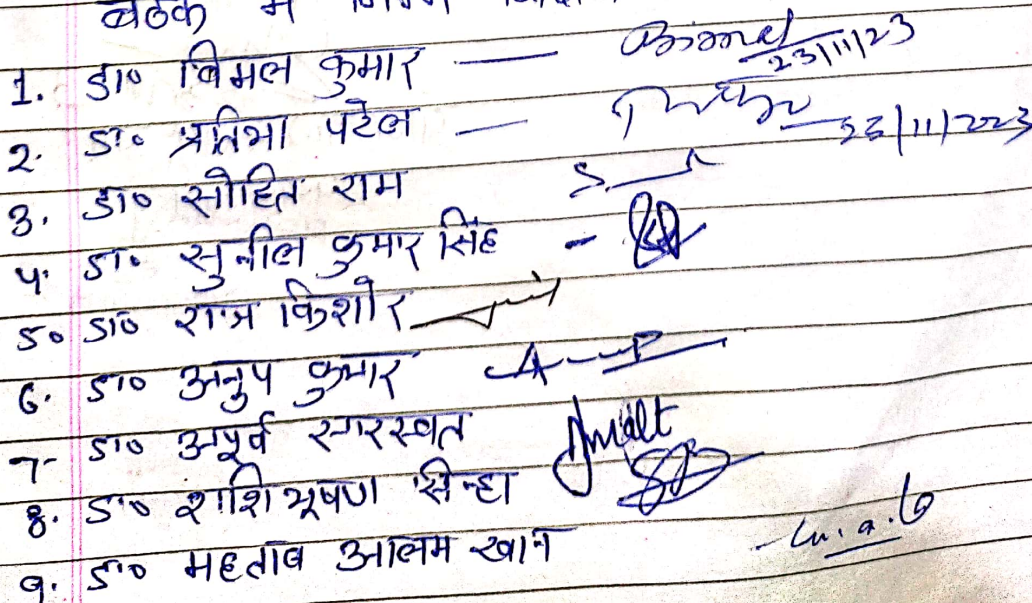 बैठक में निम्न
1. डा० बिमल कुमार — Bimal 23/11/23
2. डा० प्रतिभा पटेल — 23/11/2023
3. डा० सोहित राम
4. डा० सुनील कुमार सिंह -
5. डा० राज किशोर
6. डा० अनुप कुमार
7- डा० अपूर्व सारस्वत
8. डा० शशि भूषण सिन्हा
9. डा० महताब आलम खान